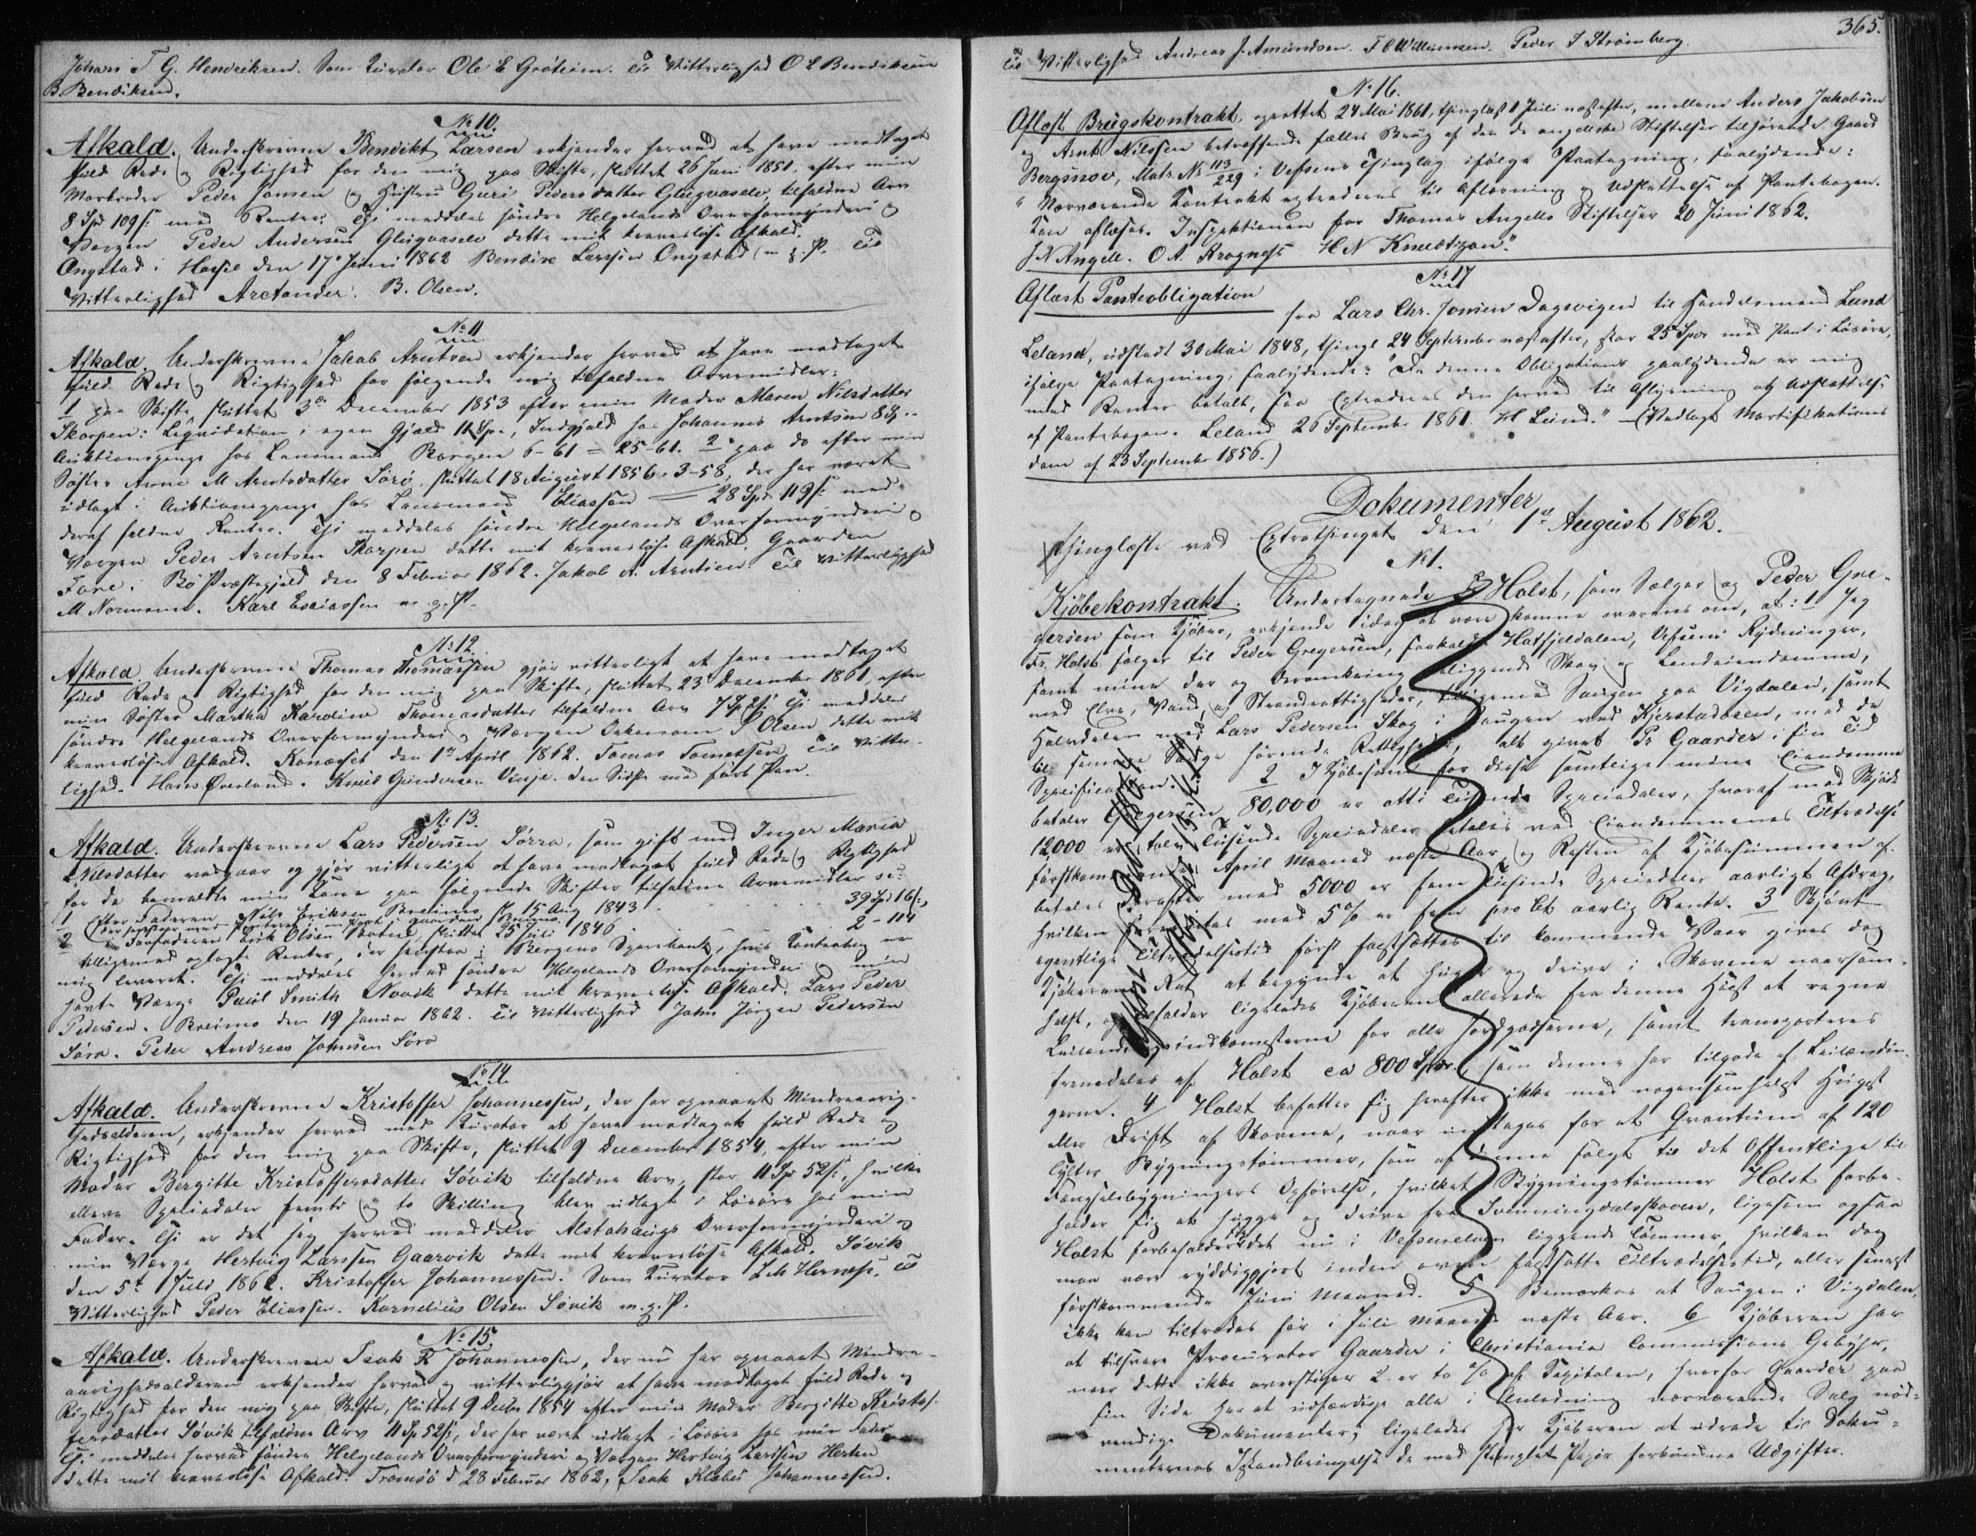 Johans T G. Hendriksen. Som Kurator Ole E Grøteim. Til Vitterlighed O L Bendiksen
B. Bendiksen.
No 10.
Afkald. Underskrevne Bendikt Larsen erkjender herved at have modtaget
fuld Rede og Rigtighed for den mig paa Skifte, sluttet 26 Juni 1851 efter min
Morbroder Peder Jonsen og Hustru Guri Pedersdatter Glugvasele, tilfaldne Arv
8 Spd 109 s. med Renter. Thi meddeles søndre Helgelands Overformynderi og
Værgen Peder Andersen Glugvasele dette mit kraveslöse Afkald.
Ongstad i Hassel den 17e Juni 1862 Bendix Larssen Ongstad m. p. P. Til
Vitterlighed Arctander. B. Olsen.
No 11
Afkald. Underskrevne Jakob Arntsen erkjender herved at have modtaget
fuld Rede og Rigtighed for følgende mig tilfaldne Arvemidler:
1 paa Skifte, sluttet 3die December 1853 efter min Moder Maren Nilsdatter
Skorpen: Liqvidation i egen Gjæld 11 Sp., Indgjæld hos Johannes Arntsen 8 s. -
Auktionspenge hos Lensmand Borgen 6-61 = 25-61. 2 paa do efter min
Søster Anne M Arntsdatter Sørø, sluttet 18 August 1856 - 3-58, der har været
udlagt i Auktionspenge hos Lensmand Eliassen = 28 Spd 119 s. med
deraf faldne Renter. Thi meddeles søndre Helgelands Overformynderi og
Værgen Peder Arntsen Skorpen dette mit kraveslöse Afkald. Gaarden
Fore i Bø Præstegjeld den 8 Februar 1862. Jakob A. Arntsen. Til Vitterlighed
M Normann. Karl Esaiassen m. p. P.
No 12.
Afkald. Underskrevne Thomas Thomassen gjør vitterligt at have modtaget
fuld Rede og Rigtighed for den mig paa Skifte, sluttet 23 December 1861, efter
min Søster Martha Karoline Thomasdatter tilfaldne Arv 7 Sp 2 s. Thi meddeles
søndre Helgelands Overformynderi og Værgen P Olsen dette mit
kraveslöse Afkald. Konæset den 1e April 1862. Tomas Tomessen. Til Vitter-
lighed. Hans Øverland. Knud Gundersen Vinje. den Sidste med ført Pen.
No 13.
Afkald. Underskrevne Lars Pedersen Sørra, som gift med Inger Maria
Nilsdatter vedgaar og gjør vitterligt at have modtaget fuld Rede og Rigtighed
for de bemeldte min Kone paa følgende Skifter tilfaldne Arvemidler se:
1 Efter Faderen Niels Eriksen Breimo sl. 15 Aug 1843 . . . 39 Spd 16 s,
2 - Farfaderen Erik Olsen sluttet 25 Juli 1846 . . . 2 - 114
tilligemed oplagte Renter, der henstaar i Bergens Sparebank, hvis Kontrabog er
mig leveret. Thi meddeles herved søndre Helgelands Overformynderi og min
Værge Paul Smith Novik dette mit kraveslöse Afkald. Lars Peder
Pedersen. Breimo den 19 Januar 1862. Til Vitterlighed John Jørgen Pedersen
Søra. Peder Andreas Johnsen Sørø
No 14
Afkald. Underskrevne Kristoffer Johannessen, der har opnaaet Mindreaarig-
hedsalderen, erkjender herved med Kurator at have modtaget fuld Rede og
Rigtighed for den mig paa Skifte, sluttet 9 December 1854, efter min
Moder Bergitte Kristoffersdatter Søvik tilfaldne Arv, stor 11 Sp 52 s, hvilke
elleve Speciedaler femti og to Skilling blev udlagt i Løsøre hos min
Fader. Thi er det jeg herved meddeler Alstahaugs Overformynderi og
min Værge Hertvig Larssen Gaarvik dette mit kraveslöse Afkald. Søvik
den 5te Juli 1862. Kristoffer Johannessen. Som Kurator L. Hernæs. Til
Vitterlighed Peder Eliassen. Kornelius Olsen Søvik m. p. P.
No 15.
Afkald. Underskrevne Isak K Johannessen, der nu har opnaaet Mindre-
aarighedsalderen erkjender herved og vitterliggjør at have modtaget fuld Rede og
Rigtighed for den mig paa Skifte, sluttet 9 Decbr 1854 efter min Moder Bergitte Kristof-
fersdatter Søvik tilfaldne Arv 11 Sp 52 s, der har været udlagt i Løsøre hos min Fader.
Thi meddeles herved søndre Helgelands Overformynderi og Værgen Hertvig Larssen
dette mit kraveslöse Afkald. Tromsö d 28 Februar 1862, Isak Klæbo Johannessen.
365.
Til Vitterlighed Andreas J. Amundsen. F O Willumsen. Peder J Strømberg.
No 16.
Aflæst Brugskontrakt, oprettet 24 Mai 1861, thinglæst 1 Juli næstefter, mellem Anders Jakobsen
og Arnt Nilssen betreffende fælles Brug af den de angellske Stiftelser tilhørende Gaard
Bergsnov, Matr. No 113/229 i Vefsens Thinglag ifølge Paategning, saalydende:
"Nærværende Kontrakt extraderes til Aflæsning og Udslettelse af Pantebogen.
Kan aflæses. Inspektionen for Thomas Angells Stiftelser 20 Juni 1862.
J N Angell. O A. Krogness H N Knudtzon."
No 17
Aflæst Panteobligation fra Lars Chr. Jonsen Dagsvigen til Handelsmand Lund
Leland, udstedt 30 Mai 1848, thingl 24 September næstefter, stor 25 Spdr med Pant i Løsøre,
ifølge Paategning, saalydende: "Da denne Obligations paalydende er mig
med Renter betalt, saa extraderes den herved til Aflysning og Udslettelse
af Pantebogen. Leland 26 September 1861. H Lund." - (Vedlagt Mortifikations
dom af 23 September 1856.)
Dokumenter
thinglæste ved Extrathinget den 1ste August 1862.
No 1.
Kjøbekontrakt. Undertegnede Fr Holst, som Sælger og Peder Gre-
gersen som Kjøber, erkjende idag at være komne overens om, at: 1 Jeg
Fr. Holst sælger til Peder Gregersen, saakaldt Hatfjelddalen, Rydninger,
samt mine der og deromkring liggende Skov og Landeiendomme,
med Elve, Vand og Strandrettigheder, tilligemed Saugen paa Vigdalen, samt
Halvdelen med Lars Pedersen Skog i Saugen ved Kjerstadosen, med de
til samme Sauge hørende Rettigheder, alt givet Pr Gaarder i sin Tid
Specification. 2 I Kjøbesum for disse samtlige mine Eiendomme
betaler Gregersen 80,000 er otti Tusende Speciedaler, hvoraf med Skjøde
12,000 er tolv Tusinde Speciedaler betales ved Eiendommenes Tiltrædelse
førstkommende April Maaned næste Aar, og Resten af Kjøbesummen
betales derefter med 5000 er fem Tusinde Speciedaler aarligt Afdrag,
hvilken forrentes med 5 % er fem pro Ct aarlig Rente. 3 Skjønt
egentlige Tiltrædelsestid først fastsættes til kommende Vaar gives dog
Kjøberen Ret at begynde at hugge og drive i Skovene naarsom-
helst, og tilfalder ligeledes Kjøberen allerede fra denne Høst at regne
Leilændingsindkomsterne for alle Jordgodserne, samt transporteres
fremdeles af Holst ca 800 Spdr, som denne har tilgode af Leilændin-
gerne. 4/ Holst befatter sig herefter ikke med nogensomhelst Hugst
eller Drift af Skovene, naar undtages for et Qvantum af 120
Tylter Bygningstømmer, som af denne solgt til det Offentlige til
Fængselsbygningers Opførelse, hvilket Bygningstømmer Holst forbe-
holder sig at hugge og drive fra Svenningdalsskoven, ligesom ogsaa
Holst forbeholder sig det nu i Vefsenelven liggende Tømmer, hvilken dog
maa være ryddiggjort inden oven fastsatte Tiltrædelsestid, eller senest
førstkommende Juni Maaned. 5 Bemærkes at Saugen i Vigdalen
ikke kan tiltrædes før i Juli Maaned næste Aar. 6 Kjøberen har
at tilsvare Procurator Gaarder i Christiania Commissions Gebyhr,
naar dette ikke overstiger 2 er to % af Kapitalen, hvorfor Gaarder paa
sin Side har at udfærdige alle i Anledning nærværende Salg nød-
vendige Dokumenter; ligeledes har Kjøberen at udrede til Doku-
menternes Istandbringelse de med stemplet Papir forbundne Udgifter.